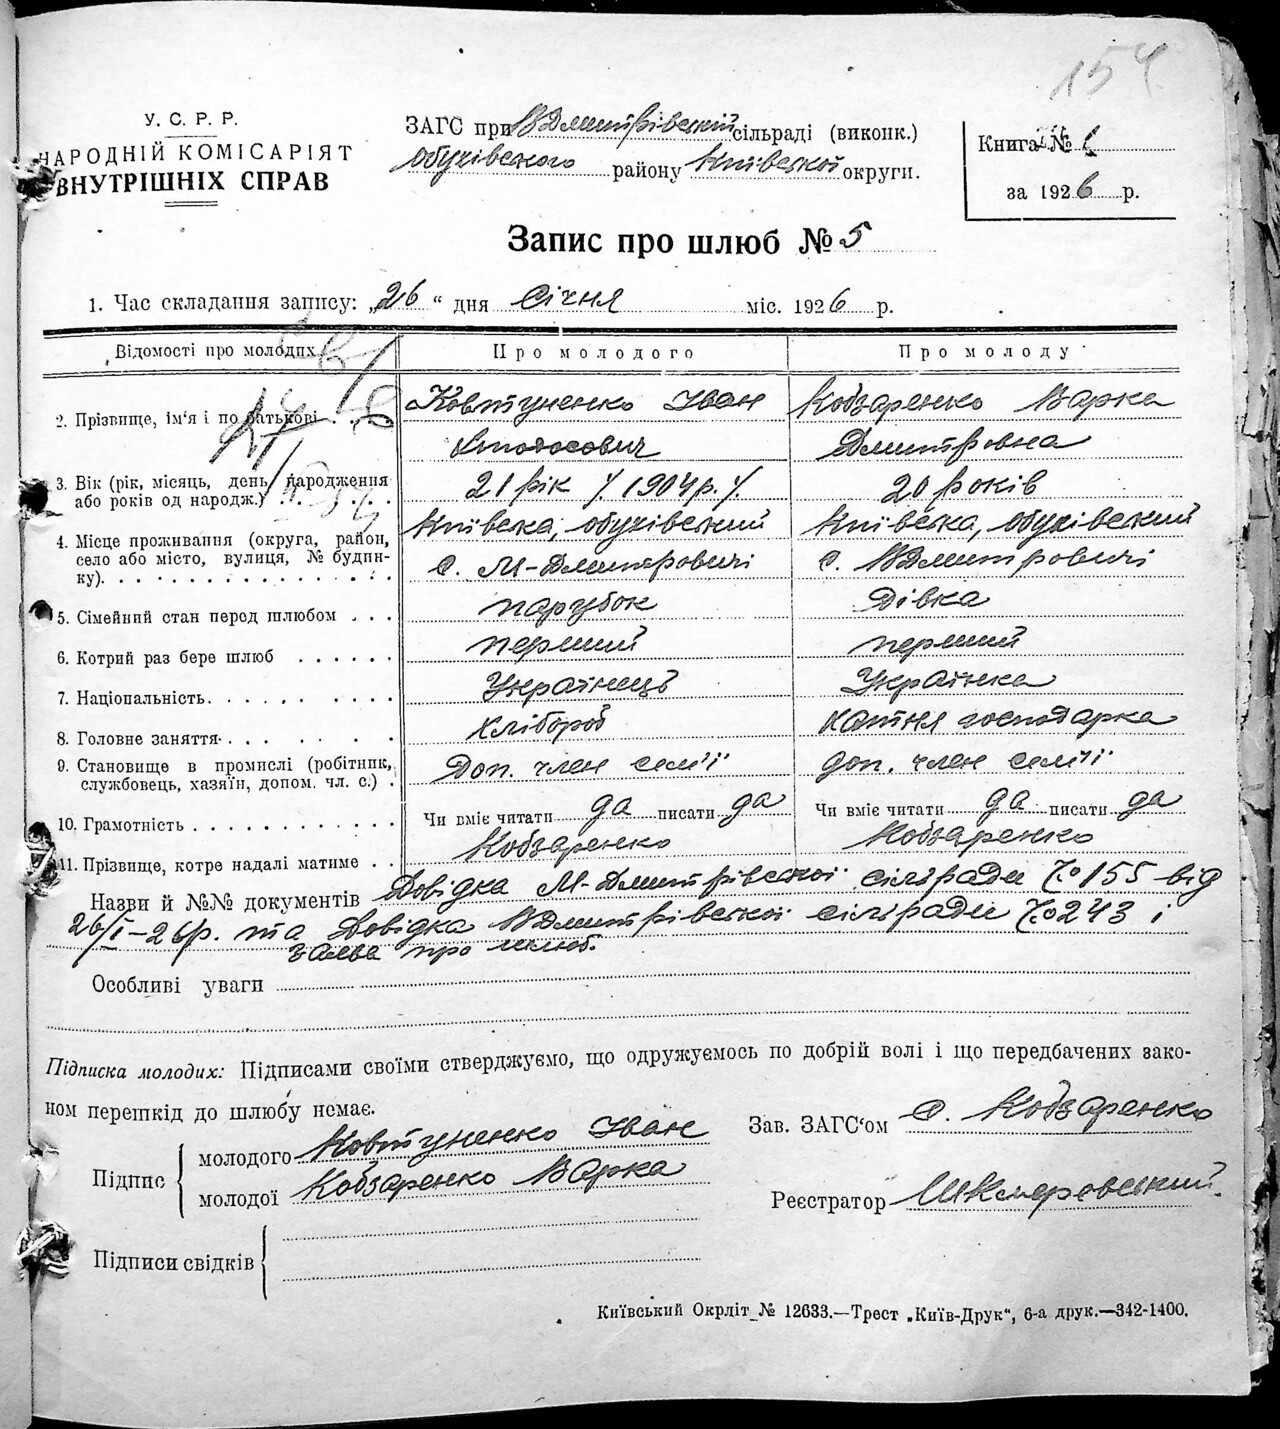 154
У. С. Р. Р.
НАРОДНІЙ КОМІСАРІЯТ
ВНУТРІШНІХ СПРАВ
ЗАГС при ВДмитрівській сільраді (виконк.)
Обухівського району Київської округи.
Книга №
за 1926 р.
Запис про шлюб № 5
1. Час складання запису: „26“ дня Січня міс. 1926 р.
Відомості про молодих Про молодого Про молоду
2. Прізвище, ім'я і по батькові Ковтуненко Іван Кобзаренко Варка
Дмитровна
3. Вік (рік, місяць, день народження або років од народж.) 21 рік /. 1904 р. /. 20 років
4. Місце проживання (округа, район, село або місто, вулиця, № будинку) Київська, обухівський Київська, обухівский
с. М-Дмитровичі с. ВДмитровичі
5. Сімейний стан перед шлюбом парубок Дівка
6. Котрий раз бере шлюб перший перший
7. Національність Українець Українка
8. Головне заняття Хлібороб хатня господарка
9. Становище в промислі (робітник, службовець, хазяїн, допом. чл. с.) Доп. член сем'ї доп. член сем'ї
10. Грамотність Чи вміє читати да писати да Чи вміє читати да писати да
11. Прізвище, котре надалі матиме Кобзаренко Кобзаренко
Назви й №№ документів Довідка М-Дмитрівської сілради № 155 від
26/I-26р. та Довідка ВДмитрівської сілради № 243 і
заява про шлюб.
Особливі уваги
Підписка молодих: Підписами своїми стверджуємо, що одружуємось по добрій волі і що передбачених зако-
ном перешкід до шлюбу немає.
Зав. ЗАГС'ом С. Кобзаренко
Підпис молодого Ковтуненко Іван
молодої Кобзаренко Варка
Реєстратор
Підписи свідків
Київський Окрліт № 12633.—Трест „Київ-Друк“, 6-а друк.—342-1400.